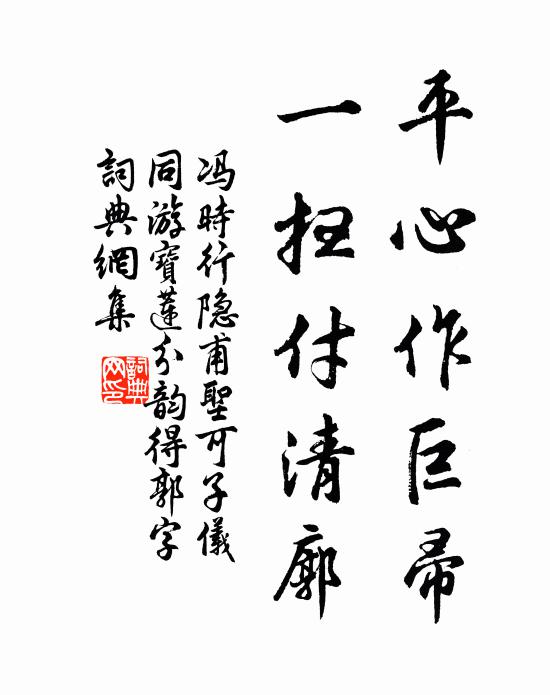 平心作巨帚
一扫付清廓
冯時行隐甫聖可子儀
同游寶蓮分韵得郭字
詞典網集
詞典网印